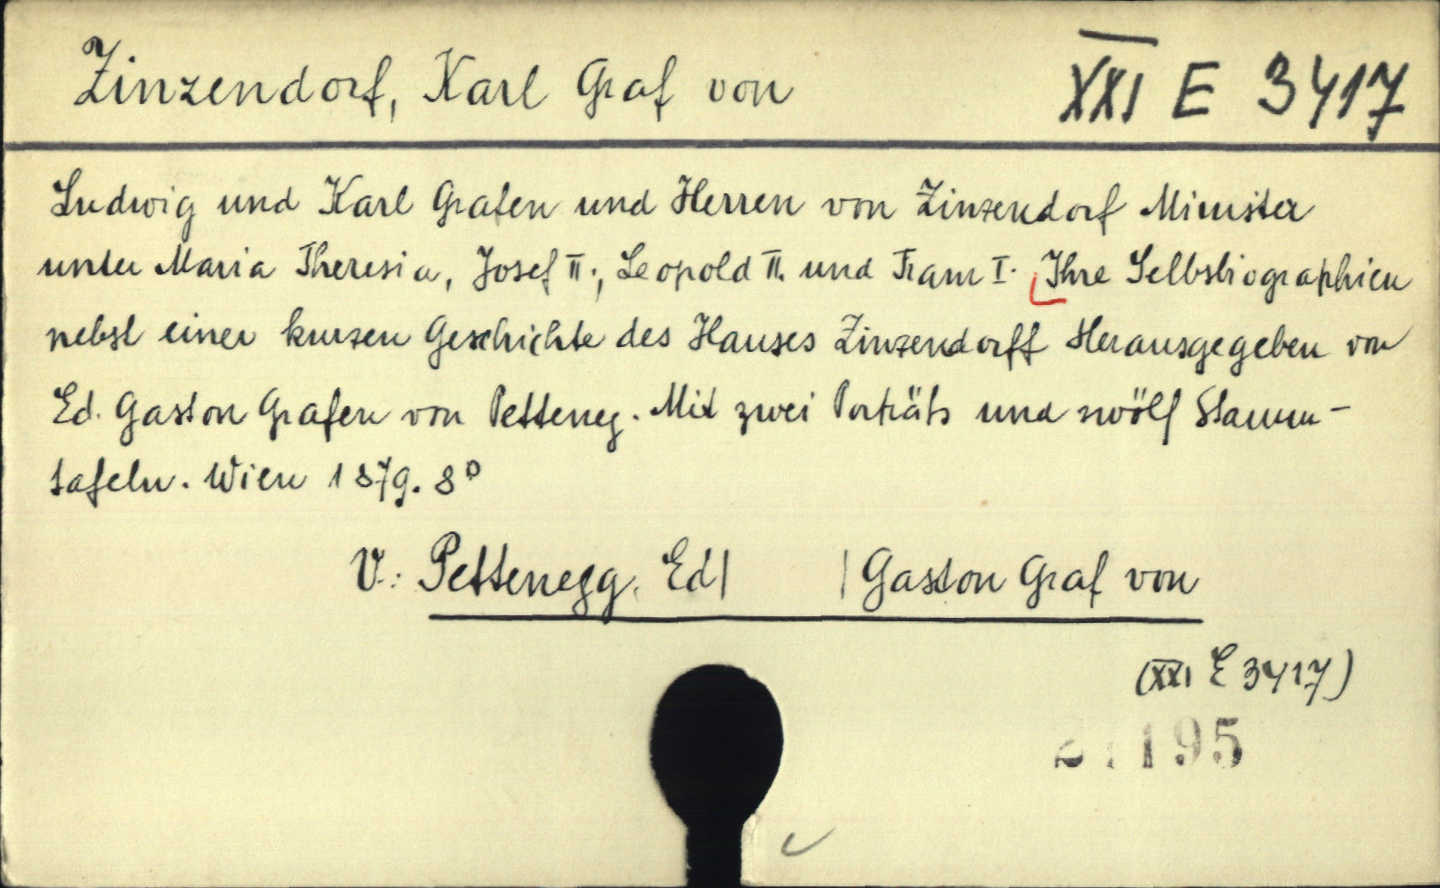 Zinzendorf, Karl Graf von
XXI E 3417
Ludwig und Karl Grafen und Herren von Zinzendorf Minister
unter Maria Theresia, Josef II., Leopold II. und Franz I. Ihre Selbsbiographien
nebst einer kurzen Geschichte des Hauses Zinzendorff Herausgegeben von
Ed. Gaston Grafen von Petteneg. Mit zwei Porträts und zwölf Stamm-
tafeln. Wien 1879. 8°
V.: Pettenegg, Ed| |Gaston Graf von
(XXI E 3417)
195